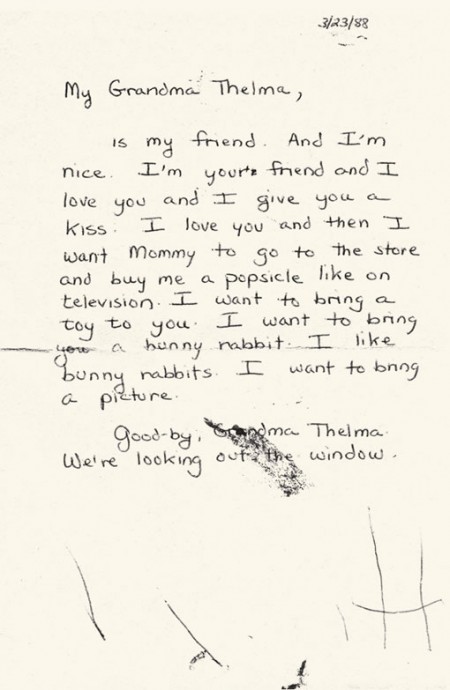 3/23/88
My Grandma Thelma,
is my friend. And I'm
nice. I'm your friend and I
love you and I give you a
kiss. I love you and then I
want Mommy to go to the store
and buy me a popsicle like on
television. I want to bring a
toy to you. I want to bring
you a bunny rabbit. I like
bunny rabbits. I want to bring
a picture.
Good-by, Grandma Thelma.
We're looking out the window.
H